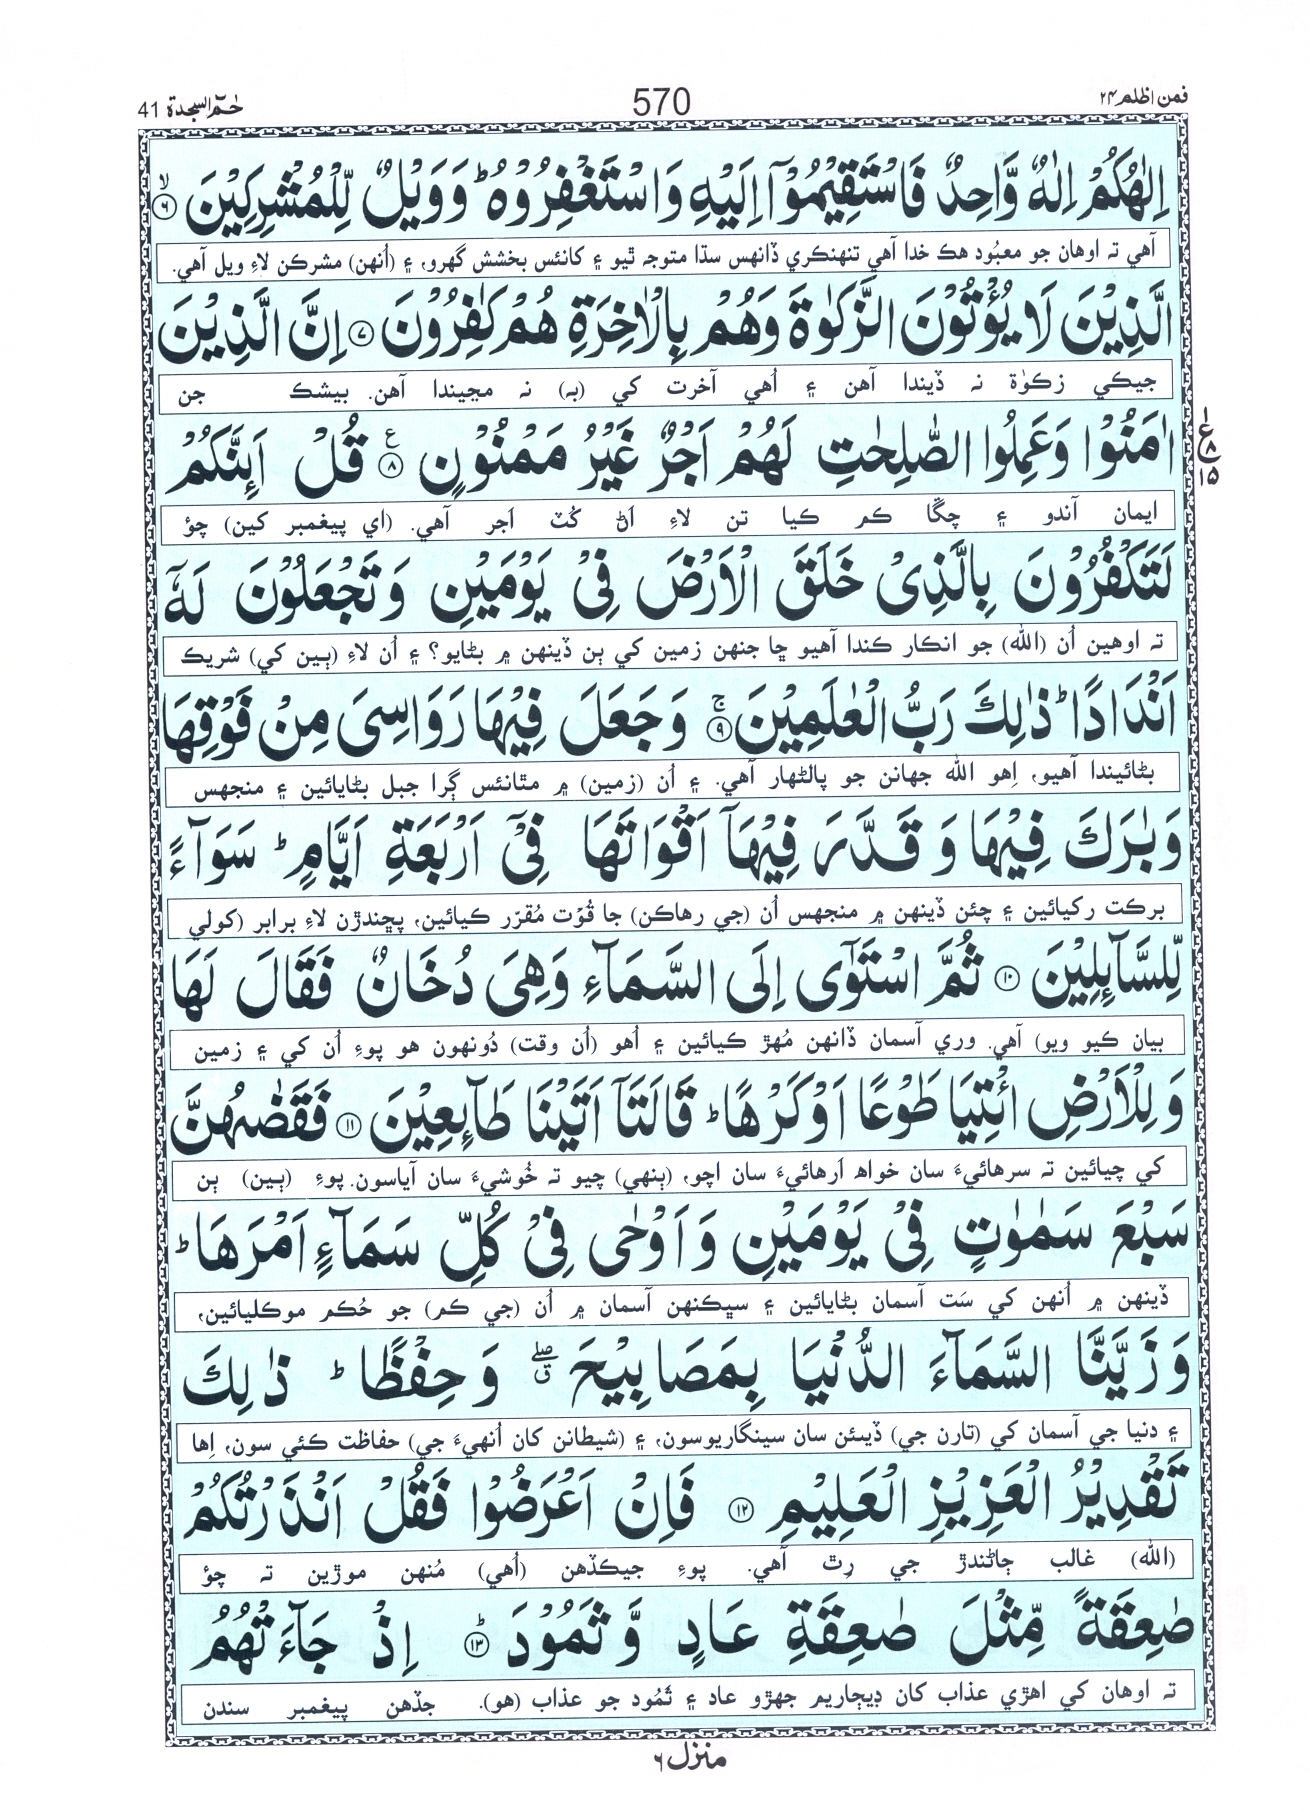 فمن اظلم ۲۴
570
حٰمٓ السجدة 41
اِلٰهُكُمْ اِلٰهٌ وَّاحِدٌ فَاسْتَقِيْمُوْٓا اِلَيْهِ وَاسْتَغْفِرُوْهُ ؕ وَوَيْلٌ لِّلْمُشْرِكِيْنَ ۙ﴿۶﴾
آهي ته اوهان جو معبُود هڪ خدا آهي تنهنڪري ڏانهس سڌا متوجه ٿيو ۽ کانئس بخشش گهرو، ۽ (اُنهن) مشرڪن لاءِ ويل آهي.
الَّذِيْنَ لَا يُؤْتُوْنَ الزَّكٰوةَ وَهُمْ بِالْاٰخِرَةِ هُمْ كٰفِرُوْنَ ﴿۷﴾ اِنَّ الَّذِيْنَ
جيڪي زڪوٰة نه ڏيندا آهن ۽ اُهي آخرت کي (به) نه مڃيندا آهن. بيشڪ جن
اٰمَنُوْا وَعَمِلُوا الصّٰلِحٰتِ لَهُمْ اَجْرٌ غَيْرُ مَمْنُوْنٍ ﴿۸﴾ ع قُلْ اَئِنَّكُمْ
۱
ع
۸
۱۵
ايمان آندو ۽ چڱا ڪم ڪيا تن لاءِ اَڻ کُٽ اَجر آهي. (اي پيغمبر کين) چؤ
لَتَكْفُرُوْنَ بِالَّذِىْ خَلَقَ الْاَرْضَ فِىْ يَوْمَيْنِ وَتَجْعَلُوْنَ لَهٗٓ
ته اوهين اُن (الله) جو انڪار ڪندا آهيو ڇا جنهن زمين کي ٻن ڏينهن ۾ بڻايو؟ ۽ اُن لاءِ (ٻين کي) شريڪ
اَنْدَادًا ؕ ذٰلِكَ رَبُّ الْعٰلَمِيْنَ ۚ﴿۹﴾ وَجَعَلَ فِيْهَا رَوَاسِىَ مِنْ فَوْقِهَا
بڻائيندا آهيو، اِهو الله جهانن جو پالڻهار آهي. ۽ اُن (زمين) ۾ مٿانئس ڳرا جبل بڻايائين ۽ منجهس
وَبٰرَكَ فِيْهَا وَقَدَّرَ فِيْهَآ اَقْوَاتَهَا فِىْٓ اَرْبَعَةِ اَيَّامٍ ؕ سَوَآءً
برڪت رکيائين ۽ چئن ڏينهن ۾ منجهس اُن (جي رهاڪن) جا قُوْت مُقرّر ڪيائين، پڇندڙن لاءِ برابر (کولي
لِّلسَّآئِلِيْنَ ﴿۱۰﴾ ثُمَّ اسْتَوٰٓى اِلَى السَّمَآءِ وَهِىَ دُخَانٌ فَقَالَ لَهَا
بيان ڪيو ويو) آهي. وري آسمان ڏانهن مُهڙ ڪيائين ۽ اُهو (اُن وقت) دُونهون هو پوءِ اُن کي ۽ زمين
وَلِلْاَرْضِ ائْتِيَا طَوْعًا اَوْ كَرْهًا ؕ قَالَتَآ اَتَيْنَا طَآئِعِيْنَ ﴿۱۱﴾ فَقَضٰىهُنَّ
کي چيائين ته سرهائيءَ سان خواهه اَرهائيءَ سان اچو، (ٻنهي) چيو ته خُوشيءَ سان آياسون. پوءِ (ٻين) ٻن
سَبْعَ سَمٰوٰتٍ فِىْ يَوْمَيْنِ وَاَوْحٰى فِىْ كُلِّ سَمَآءٍ اَمْرَهَا ؕ
ڏينهن ۾ اُنهن کي سَت آسمان بڻايائين ۽ سڀڪنهن آسمان ۾ اُن (جي ڪم) جو حُڪم موڪليائين،
وَزَيَّنَّا السَّمَآءَ الدُّنْيَا بِمَصَابِيْحَ ۖق وَحِفْظًا ؕ ذٰلِكَ
۽ دنيا جي آسمان کي (تارن جي) ڏيئن سان سينگاريوسون، ۽ (شيطانن کان اُنهيءَ جي) حفاظت ڪئي سون، اِها
تَقْدِيْرُ الْعَزِيْزِ الْعَلِيْمِ ﴿۱۲﴾ فَاِنْ اَعْرَضُوْا فَقُلْ اَنْذَرْتُكُمْ
(الله) غالب ڄاڻندڙ جي رِٿ آهي. پوءِ جيڪڏهن (اُهي) مُنهن موڙين ته چؤ
صٰعِقَةً مِّثْلَ صٰعِقَةِ عَادٍ وَّثَمُوْدَ ؕ﴿۱۳﴾ اِذْ جَآءَتْهُمُ
ته اوهان کي اهڙي عذاب کان ڊيڄاريم جهڙو عاد ۽ ثَمُود جو عذاب (هو). جڏهن پيغمبر سندن
منزل ۶